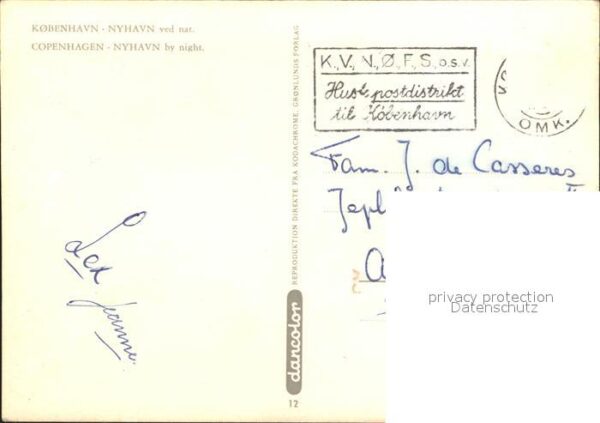 KØBENHAVN - NYHAVN ved nat.
COPENHAGEN - NYHAVN by night.
K.V.,N.,Ø.,F.,S., o.s.v.
Husk postdistrikt
til København
OMK.
Fam. J. de Casseres
Lex
Jeanne.
REPRODUKTION DIREKTE FRA KODACHROME. GRØNLUNDS FORLAG
dancolor
12
privacy protection
Datenschutz